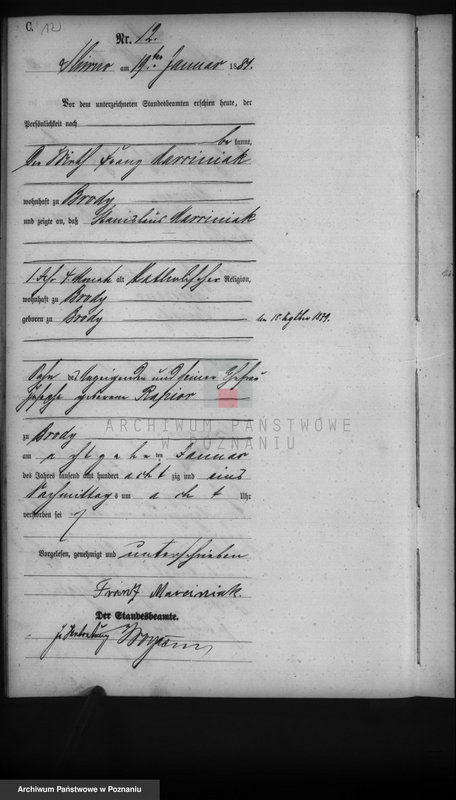 C. 12
Nr. 12.
am 19ten Januar 1881.
Vor dem unterzeichneten Standesbeamten erschien heute, der
Persönlichkeit nach
be kannt,
Der Wirth Franz Marciniak
wohnhaft zu Brody
und zeigte an, daß Stanislaus Marciniak
1 Jahr 4 Monate alt Katholischer Religion,
wohnhaft zu Brody
geboren zu Brody den 15 1879.
Sohn des Anzeigenden und seiner Ehefrau
geborene Rapior
zu Brody
am achtzehnten Januar
des Jahres tausend acht hundert achtzig und eins
Nachmittags um acht Uhr
verstorben sei
Vorgelesen, genehmigt und unterschrieben
Franz Marciniak
Der Standesbeamte.
In Vertretung
ARCHIWUM PAŃSTWOWE
W POZNANIU
Archiwum Państwowe w Poznaniu